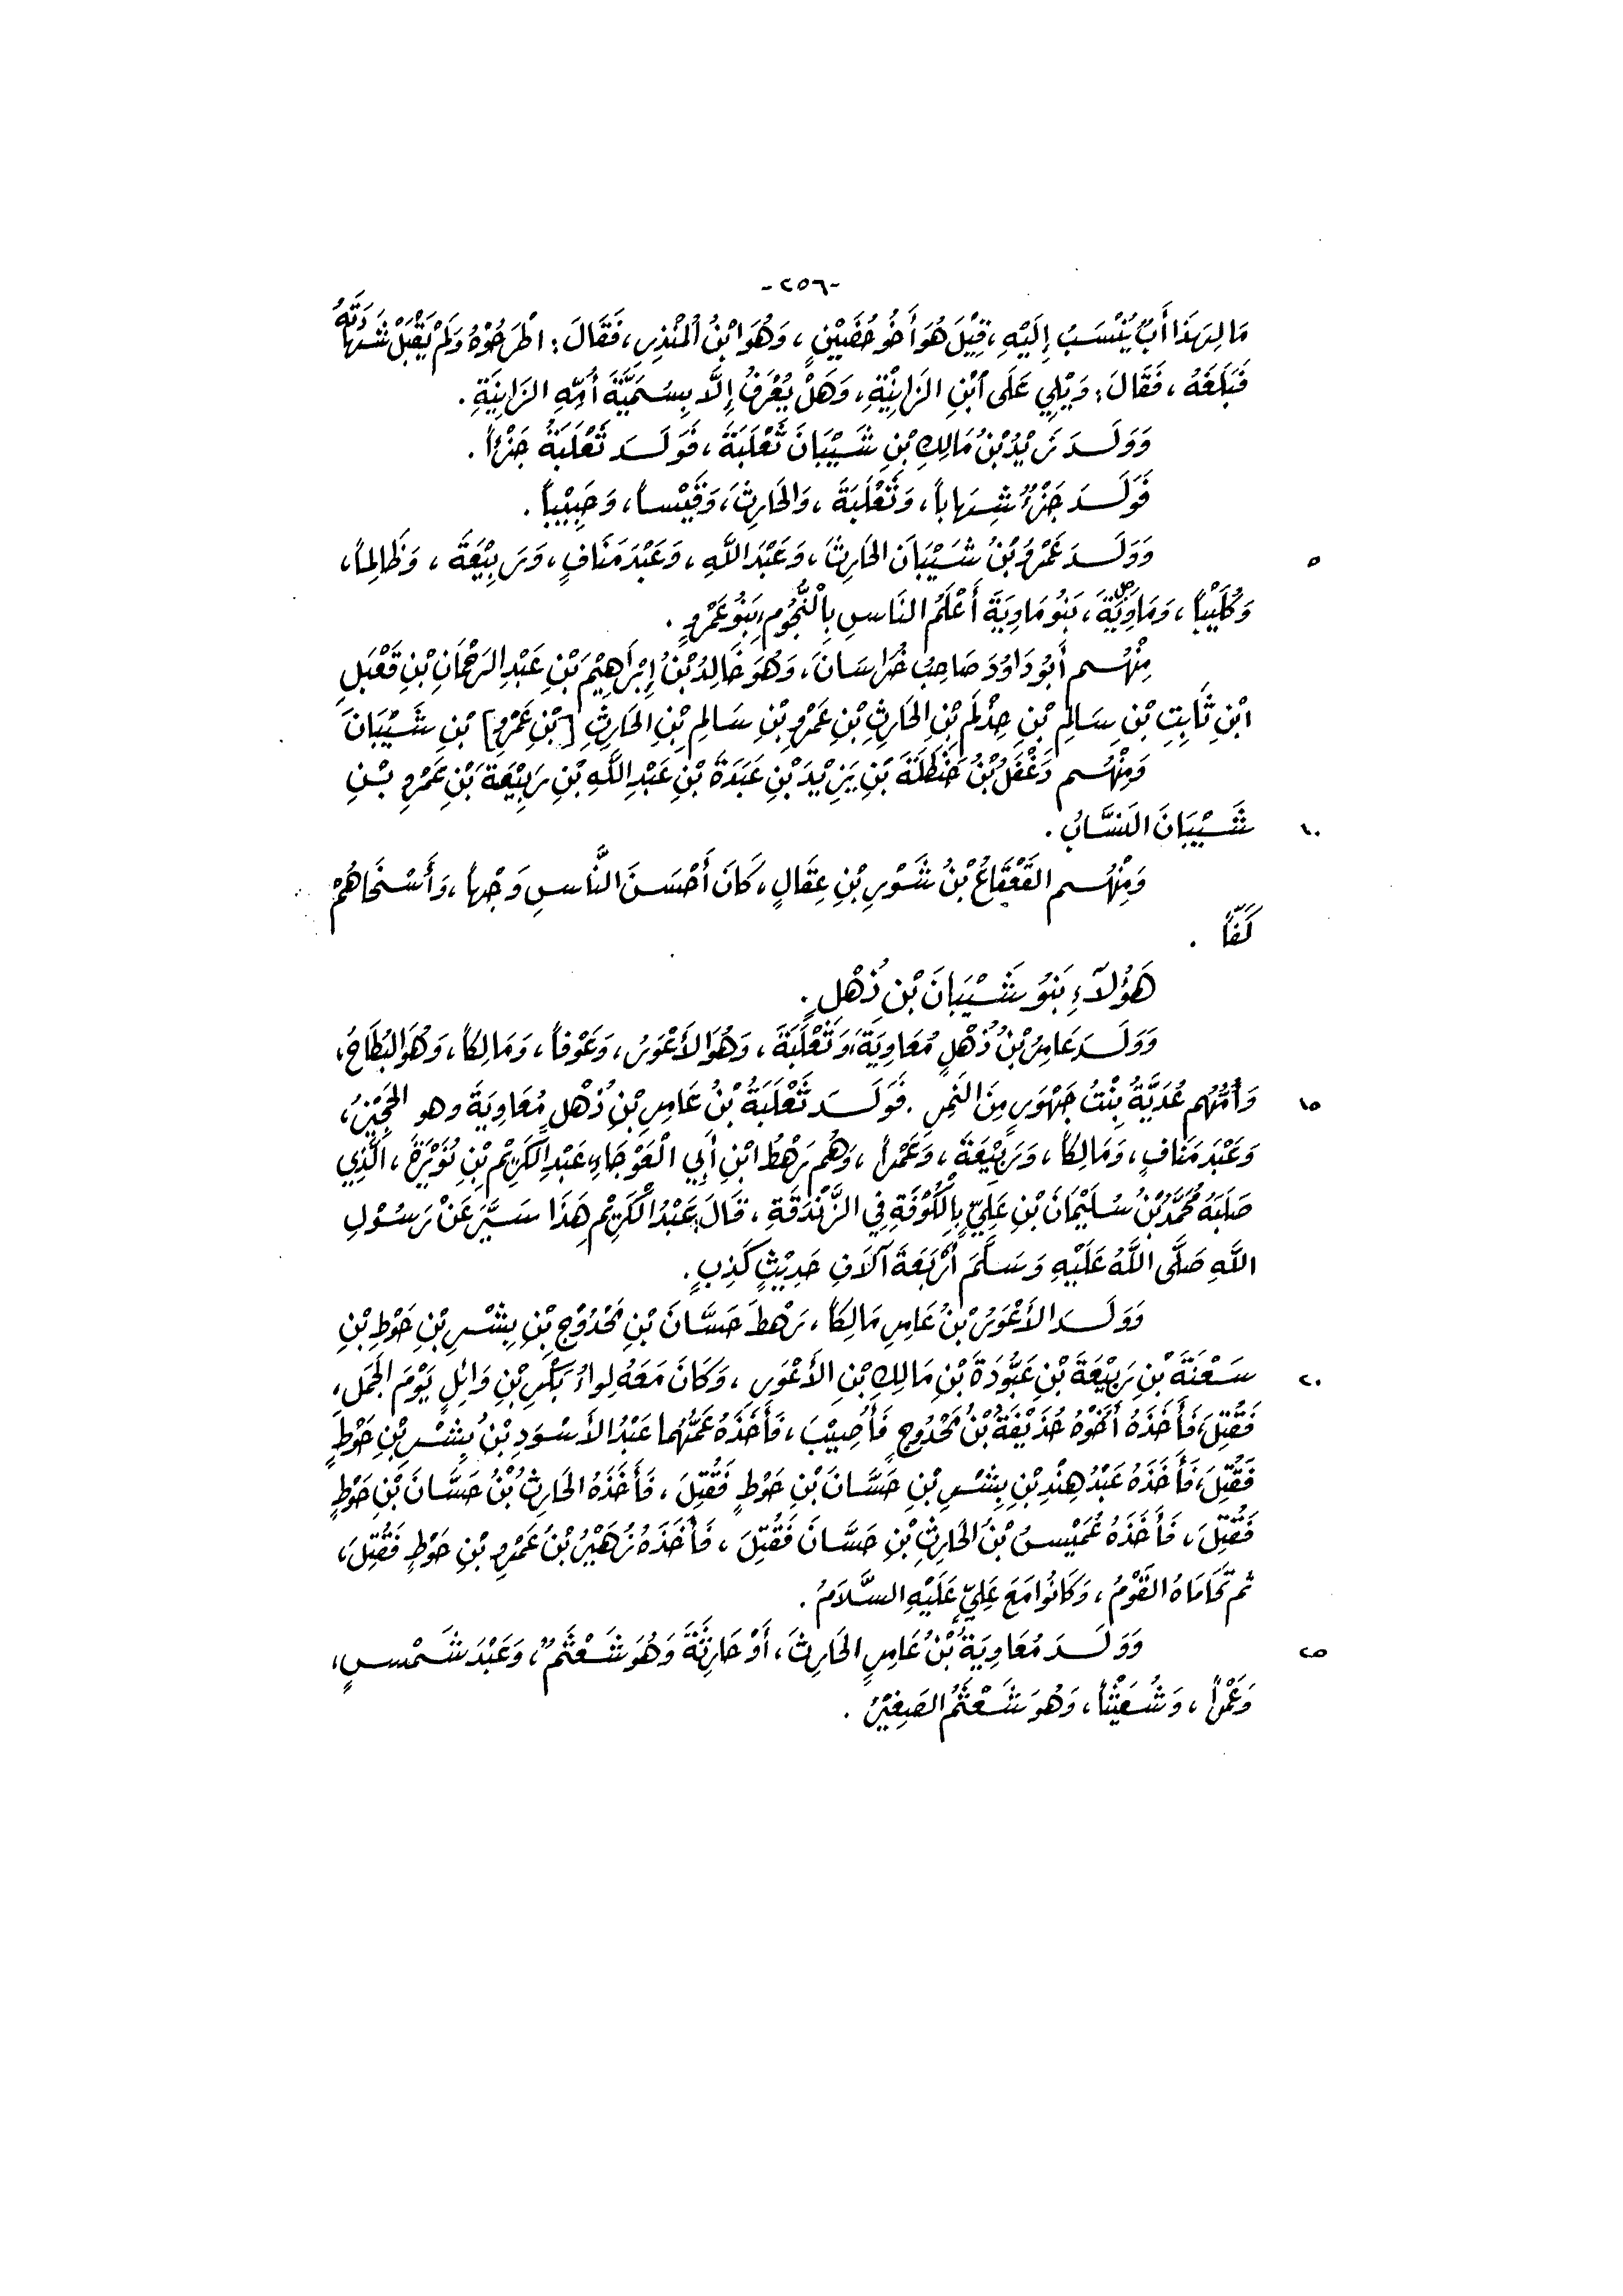 -٢٥٦-
مَا لِهَذَا أَبٌ يُنْسَبُ إِلَيْهِ، قِيْلَ هُوَ أَخُو حُضَيْنٍ، وَهُوَ ابْنُ الْمُنْذِرِ، فَقَالَ: اطْرَحُوْهُ وَلَمْ يَقْبَلْ شَهَادَتَهُ
فَبَلَغَهُ، فَقَالَ: وَيْلِي عَلَى ابْنِ الزَانِيَةِ، وَهَلْ يُعْرَفُ إِلَّا بِسُمَيَّةَ أُمِّهِ الزَانِيَةِ.
وَوَلَدَ زَيْدُ بْنُ مَالِكِ بْنِ شَيْبَانَ ثَعْلَبَةَ، فَوَلَدَ ثَعْلَبَةُ جَزْءاً.
فَوَلَدَ جَزْءٌ شِهَاباً، وَثَعْلَبَةَ، وَالحَارِثَ، وَقَيْساً، وَحَبِيْباً.
٥ وَوَلَدَ عَمْرُو بْنُ شَيْبَانَ الحَارِثَ، وَعَبْدَ اللَّهِ، وَعَبْدَ مَنَافٍ، وَرَبِيْعَةَ، وَظَالِماً،
وَكُلَيْباً، وَمَاوِيَةَ، بَنُو مَاوِيَةَ أَعْلَمُ النَاسِ بِالنُّجُومِ، بَنُو عَمْرٍو.
مِنْهُم أَبُو دَاوُدَ صَاحِبُ خُرَاسَانَ، وَهُوَ خَالِدُ بْنُ إِبْرَاهِيْمَ بْنِ عَبْدِ الرَحْمَانِ بْنِ قَعْبَلِ
ابْنِ ثَابِتِ بْنِ سَالِمِ بْنِ حِذْلَمِ بْنِ الحَارِثِ بْنِ عَمْرِو بْنِ سَالِمِ بْنِ الحَارِثِ [بْنِ عَمْرِو] بْنِ شَيْبَانَ
وَمِنْهُم دَغْفَلُ بْنُ حَنْظَلَةَ بْنِ يَزِيْدَ بْنِ عَبَدَةَ بْنِ عَبْدِ اللَّهِ بْنِ رَبِيْعَةَ بْنِ عَمْرِو بْنِ
١٠ شَيْبَانَ النَسَّابُ.
وَمِنْهُم القَعْقَاعُ بْنُ شَوْرِ بْنِ عِقَالٍ، كَانَ أَحْسَنَ النَّاسِ وَجْهاً، وَأَسْخَاهُمْ
كَفّاً.
هَؤُلَاءِ بَنُو شَيْبَانَ بْنِ ذُهْلٍ.
وَوَلَدَ عَامِرُ بْنُ ذُهْلٍ مُعَاوِيَةَ، وَثَعْلَبَةَ، وَهُوَ الأَعْوَرُ، وَعَوْفاً، وَمَالِكاً، وَهُوَ البُطَاحُ،
١٥ وَأُمُّهُم عُدَيَّةُ بِنْتُ جَهْوَرٍ مِنَ النَمِرِ. فَوَلَدَ ثَعْلَبَةُ بْنُ عَامِرِ بْنِ ذُهْلٍ مُعَاوِيَةَ وهو
وَعَبْدَ مَنَافٍ، وَمَالِكاً، وَرَبِيْعَةَ، وَعَمْراً، وَهُم رَهْطُ ابْنِ أَبِي الْعَوْجَاءِ، عَبْدِ الْكَرِيْمِ بْنِ نُوَيْرَةَ، الَّذِي
صَلَبَهُ مُحَمَّدُ بْنُ سُلَيْمَانَ بْنِ عَلِيٍّ بِالْكُوْفَةِ فِي الزَّنْدَقَةِ، قَالَ عَبْدُ الْكَرِيْمِ هَذَا سَيَّرَ عَنْ رَسُوْلِ
اللَّهِ صَلَّى اللَّهُ عَلَيْهِ وَسَلَّمَ أَرْبَعَةَ آلَافِ حَدِيْثٍ كَذِبٍ.
وَوَلَدَ الأَعْوَرُ بْنُ عَامِرٍ مَالِكاً، رَهْطَ حَسَّانَ بْنِ مَحْدُوْجِ بْنِ بِشْرِ بْنِ حَوْطِ بْنِ
٢٠ سَعْنَةَ بْنِ رَبِيْعَةَ بْنِ عَبُّودَةَ بْنِ مَالِكِ بْنِ الأَعْوَرِ، وَكَانَ مَعَهُ لِوَاءُ بَكْرِ بْنِ وَائِلٍ يَوْمَ الجَمَلِ،
فَقُتِلَ، فَأَخَذَهُ أَخُوْهُ حُذَيْفَةُ بْنُ مَحْدُوجٍ فَأُصِيْبَ، فَأَخَذَهُ عَمُّهُمَا عَبْدُ الأَسْوَدِ بْنُ بِشْرِ بْنِ حَوْطٍ
فَقُتِلَ، فَأَخَذَهُ عَبْدُ هِنْدِ بْنِ بِشْرِ بْنِ حَسَّانَ بْنِ حَوْطٍ فَقُتِلَ، فَأَخَذَهُ الحَارِثُ بْنُ حَسَّانَ بْنِ حَوْطٍ
فَقُتِلَ، فَأَخَذَهُ عُمَيْسُ بْنُ الحَارِثِ بْنِ حَسَّانَ فَقُتِلَ، فَأَخَذَهُ زُهَيْرُ بْنُ عَمْرِو بْنِ حَوْطٍ فَقُتِلَ،
ثم تَحَامَاهُ القَوْمُ، وَكَانُوا مَعَ عَلِيٍّ عَلَيْهِ السَّلَامُ.
٢٥ وَوَلَدَ مُعَاوِيَةُ بْنُ عَامِرٍ الحَارِثَ، أَوْ حَارِثَةَ وَهُوَ شَعْثَمٌ، وَعَبْدَ شَمْسٍ،
وَعَمْراً، وَشُعَيْثاً، وَهُوَ شَعْثَمُ الصَغِيْرُ.